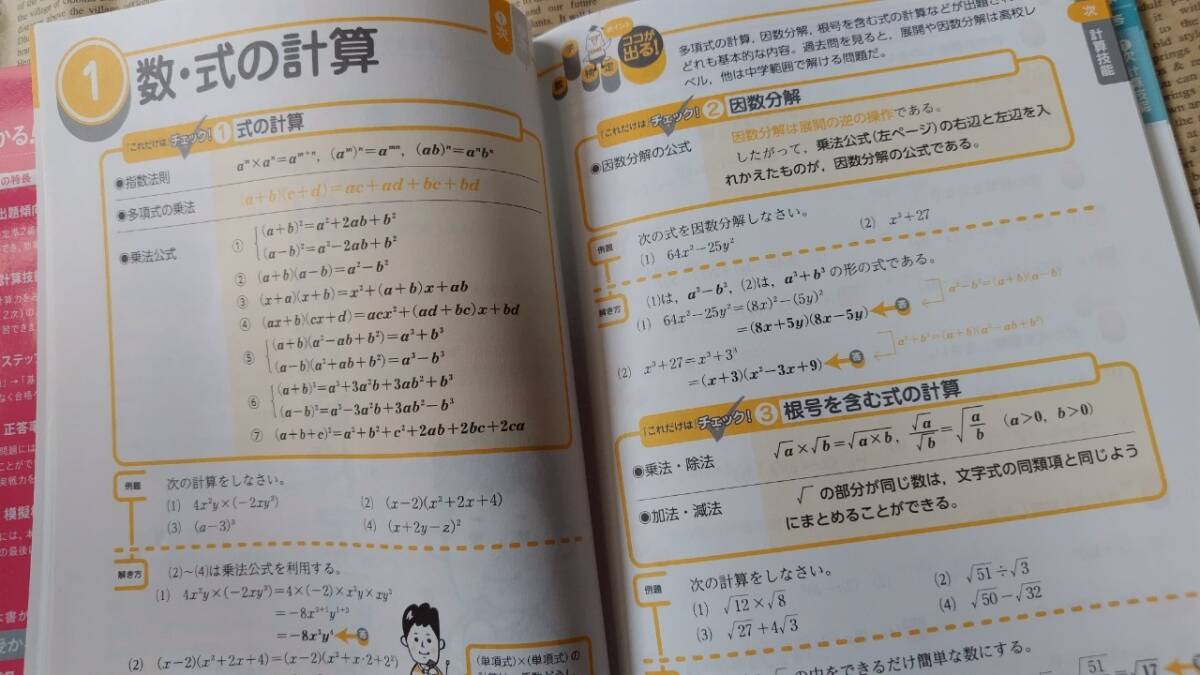 1
数・式の計算
1次
これだけは チェック! 1 式の計算
●指数法則
aᵐ×aⁿ=aᵐ⁺ⁿ, (aᵐ)ⁿ=aᵐⁿ, (ab)ⁿ=aⁿbⁿ
●多項式の乗法
(a+b)(c+d)=ac+ad+bc+bd
●乗法公式
① (a+b)²=a²+2ab+b²
(a−b)²=a²−2ab+b²
② (a+b)(a−b)=a²−b²
③ (x+a)(x+b)=x²+(a+b)x+ab
④ (ax+b)(cx+d)=acx²+(ad+bc)x+bd
⑤ (a+b)(a²−ab+b²)=a³+b³
(a−b)(a²+ab+b²)=a³−b³
⑥ (a+b)³=a³+3a²b+3ab²+b³
(a−b)³=a³−3a²b+3ab²−b³
⑦ (a+b+c)²=a²+b²+c²+2ab+2bc+2ca
例題
次の計算をしなさい。
(1) 4x²y×(−2xy³)
(2) (x−2)(x²+2x+4)
(3) (a−3)³
(4) (x+2y−z)²
解き方
(2)~(4)は乗法公式を利用する。
(1) 4x²y×(−2xy³)=4×(−2)×x²y×xy³
=−8x²⁺¹y¹⁺³
=−8x³y⁴ 答
(2) (x−2)(x²+2x+4)=(x−2)(x²+x·2+2²)
(単項式)×(単項式)の
ポイント
ココが
出る!
検定
多項式の計算, 因数分解, 根号を含む式の計算などが出題され
どれも基本的な内容。過去問を見ると, 展開や因数分解は高校レ
ベル, 他は中学範囲で解ける問題だ。
次
計算技能
これだけは チェック! 2 因数分解
●因数分解の公式
因数分解は展開の逆の操作である。
したがって, 乗法公式(左ページ)の右辺と左辺を入
れかえたものが, 因数分解の公式である。
例題
次の式を因数分解しなさい。
(1) 64x²−25y²
(2) x³+27
解き方
(1)は, a²−b², (2)は, a³+b³ の形の式である。
(1) 64x²−25y²=(8x)²−(5y)²
=(8x+5y)(8x−5y) 答
a²−b²=(a+b)(a−b)
(2) x³+27=x³+3³
=(x+3)(x²−3x+9) 答
a³+b³=(a+b)(a²−ab+b²)
これだけは チェック! 3 根号を含む式の計算
●乗法・除法
√a×√b=√a×b, √a/√b=√a/b (a>0, b>0)
●加法・減法
√ の部分が同じ数は, 文字式の同類項と同じよう
にまとめることができる。
例題
次の計算をしなさい。
(1) √12×√8
(2) √51÷√3
(3) √27+4√3
(4) √50−√32
の中をできるだけ簡単な数にする。
√51
=√17